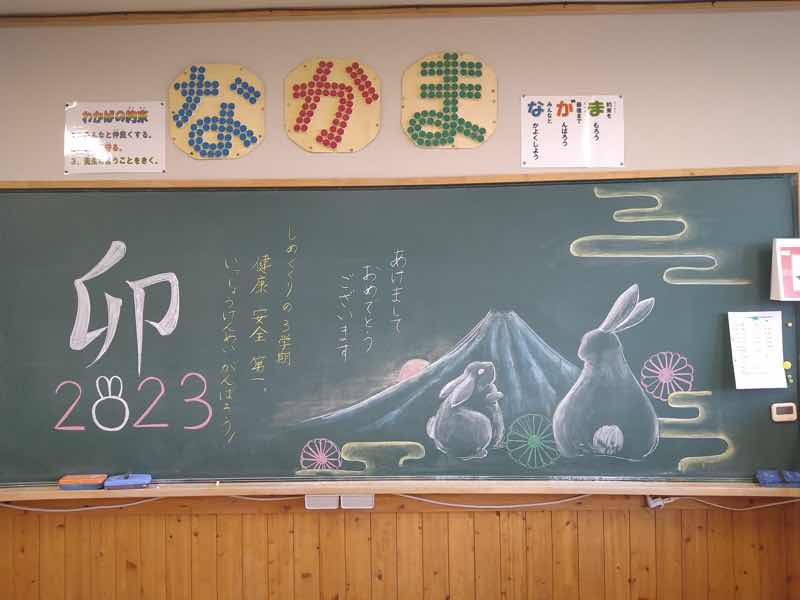 なかま
わかばの約束
んなと仲良くする。
る。
3、先生の言うことをきく。
な みんなと なかよくしよう
が 最後まで がんばろう
ま 約束を まもろう
卯
2023
あけまして
おめでとう
ございます
しめくくりの3学期
健康 安全 第一。
いっしょうけんめいがんばろう!